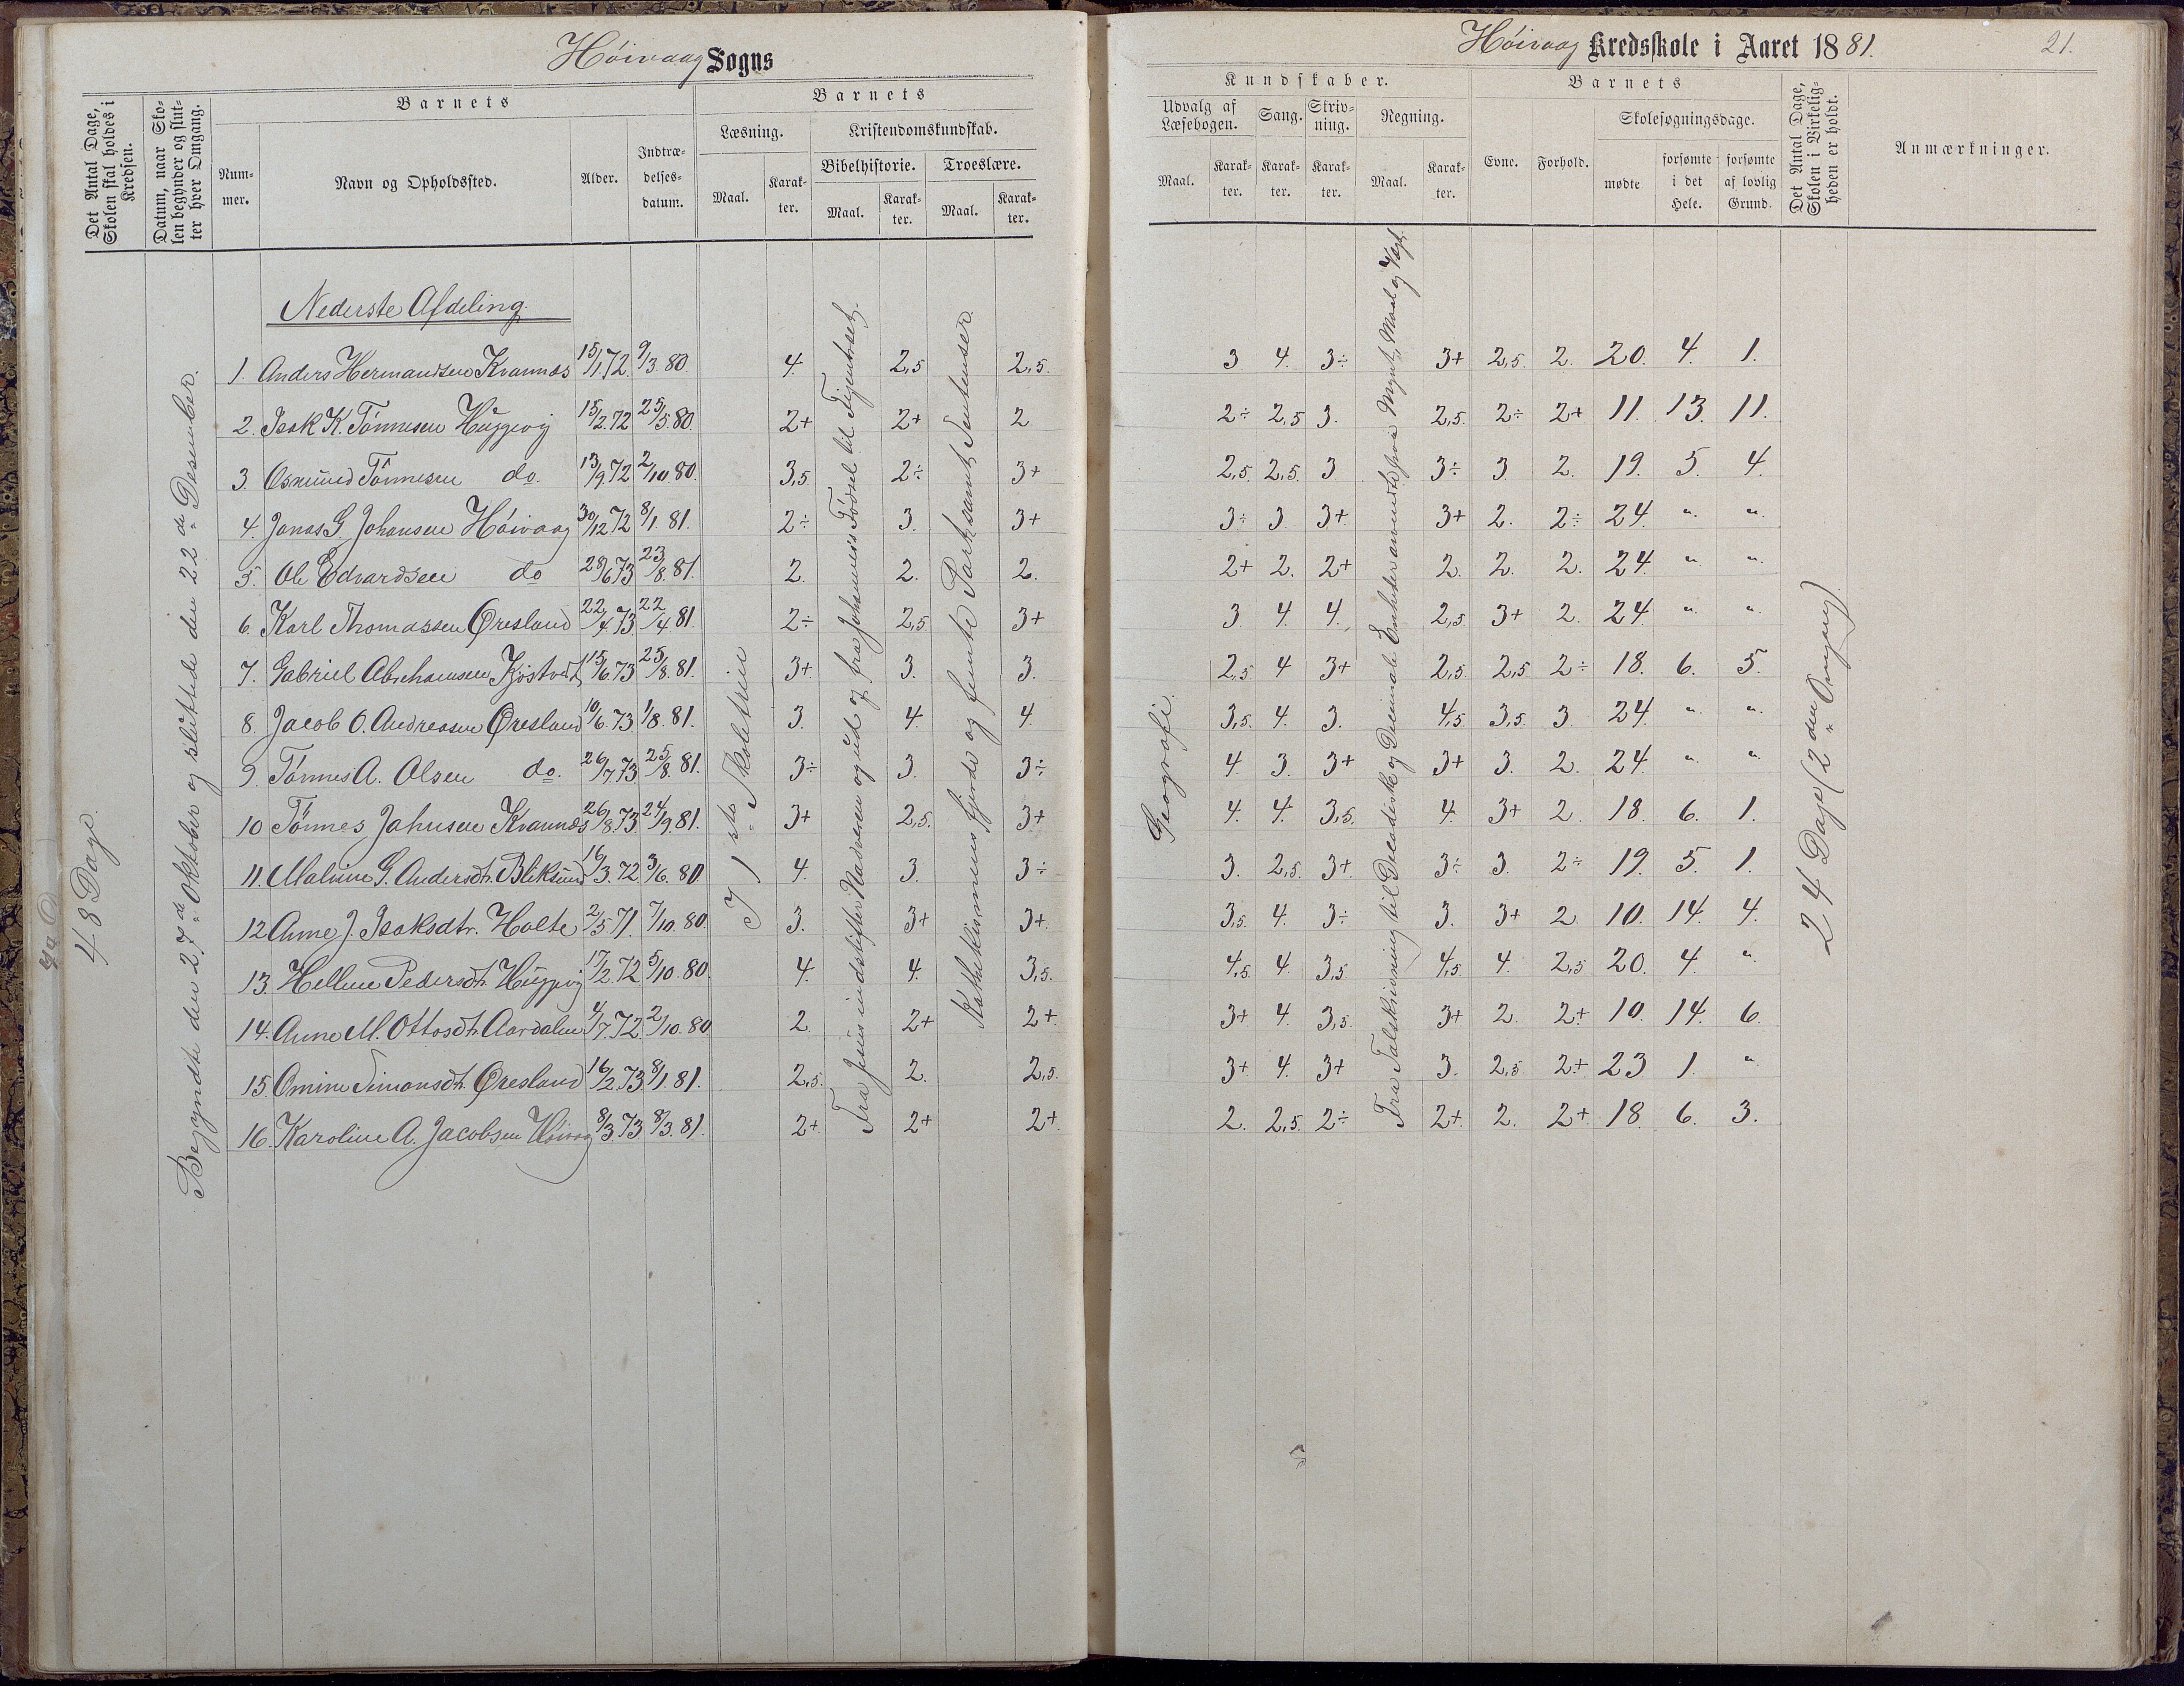 Høivaag Sogns
Det Antal Dage, Skolen skal holdes i Kredsen.
Datum, naar Skolen begynder og slutter hver Omgang.
Barnets
Nummer.
Navn og Opholdssted.
Alder.
Indtrædelsesdatum.
Barnets
Læsning.
Maal.
Karakter.
Kristendomskundskab.
Bibelhistorie.
Maal.
Karakter.
Troeslære.
Maal.
Karakter.
48 Dage.
Begyndte den 27de Oktober og sluttede den 22de Desember.
Nederste Afdeling.
1. Anders Hermandsen Kvannæs 15/1.72. 9/3.80. 4. 2,5 2,5.
2. Isak K. Tønnesen Hæppevig 15/2.72 25/5.80. 2+ 2+ 2
3. Osmund Tønnesen do. 13/9.72 2/10.80. 3,5 2÷ 3+
4. Jonas G. Johansen Høivaag 30/12.72 8/1.81. 2÷ 3. 3+
5. Ole Edvardsen do 28/6.73 23/8.81. 2. 2. 2.
6. Karl Thomassen Øresland 22/4.73. 22/4.81 2÷ 2,5. 3+
7. Gabriel Abrahamsen Kjøstvedt 15/6.73 25/8.81. 3+ 3. 3.
8. Jacob O. Andreasen Øresland 10/6.73. 1/8.81. 3. 4. 4.
9. Tønnes A. Olsen do. 26/7.73 25/8.81. 3÷ 3. 3÷
10 Tønnes Jahnsen Kvannæs 26/8.73 24/9.81. 3+ 2,5. 3+
11. Maline G. Andersdt. Bliksund 16/3.72. 3/6.80 4. 3. 3÷
12 Anne J. Isaksdtr. Holte 2/5.71. 7/10.80. 3. 3+ 3+.
13. Helline Pedersdt. 17/2.72 5/10.80. 4. 4. 3,5.
14. Anne M. Ottosdt. Aardalen 4/7.72. 2/10.80 2. 2+ 2+.
15. Omine Simonsdt. Øresland 16/2.73. 8/1.81. 2,5. 2. 2,5.
16. Karoline A. Jacobsen Høivaag 8/3.73 8/3.81. 2+. 2+ 2+.
I 1ste Skoletrin
Fra Jesus indstifter Nadveren og ud og fra Johannes's Fødsel til
Katekismens fjerde og femte Part samt Sentenser.
Høivaag Kredsskole i Aaret 1881.
21.
Kundskaber.
Udvalg af Læsebogen.
Maal.
Karakter.
Sang.
Karakter.
Skrivning.
Karakter.
Regning.
Maal.
Karakter.
Barnets
Evne.
Forhold.
Skolesøgningsdage.
mødte
forsømte i det Hele.
forsømte af lovlig Grund.
Det Antal Dage, Skolen i Virkeligheden er holdt.
Anmærkninger.
3 4. 3÷ 3+ 2,5. 2. 20. 4. 1.
2÷ 2,5 3. 2,5. 2÷ 2+ 11. 13. 11.
2,5. 2,5. 3 3÷ 3 2. 19. 5. 4.
3÷ 3 3+. 3+ 2. 2÷ 24. " "
2+ 2. 2+ 2. 2. 2. 24. " "
3 4. 4. 2,5. 3+ 2. 24. " "
2,5 4 3+ 2,5 2,5 2÷ 18. 6. 5.
3,5. 4. 3. 4,5. 3,5. 3 24. " "
4. 3. 3+ 3+ 3. 2. 24. " "
4. 4. 3,5. 4. 3+ 2. 18. 6. 1.
3. 2,5. 3+. 3÷ 3. 2÷ 19. 5. 1.
3,5. 4. 3÷ 3. 3+ 2. 10. 14. 4.
4,5. 4. 3,5 4,5 4. 2,5 20. 4. "
3+ 4. 3,5. 3+ 2. 2+ 10. 14. 6.
3+ 4. 3+ 3. 2,5 2+ 23 1. "
2. 2,5. 2÷ 2+. 2. 2+ 18. 6. 3.
Geografi.
Fra Talskrivning til Decadiske og Decimale Enheder anvendte paa Mynt, Maal og Vægt.
24 Dage (2den Omgang).